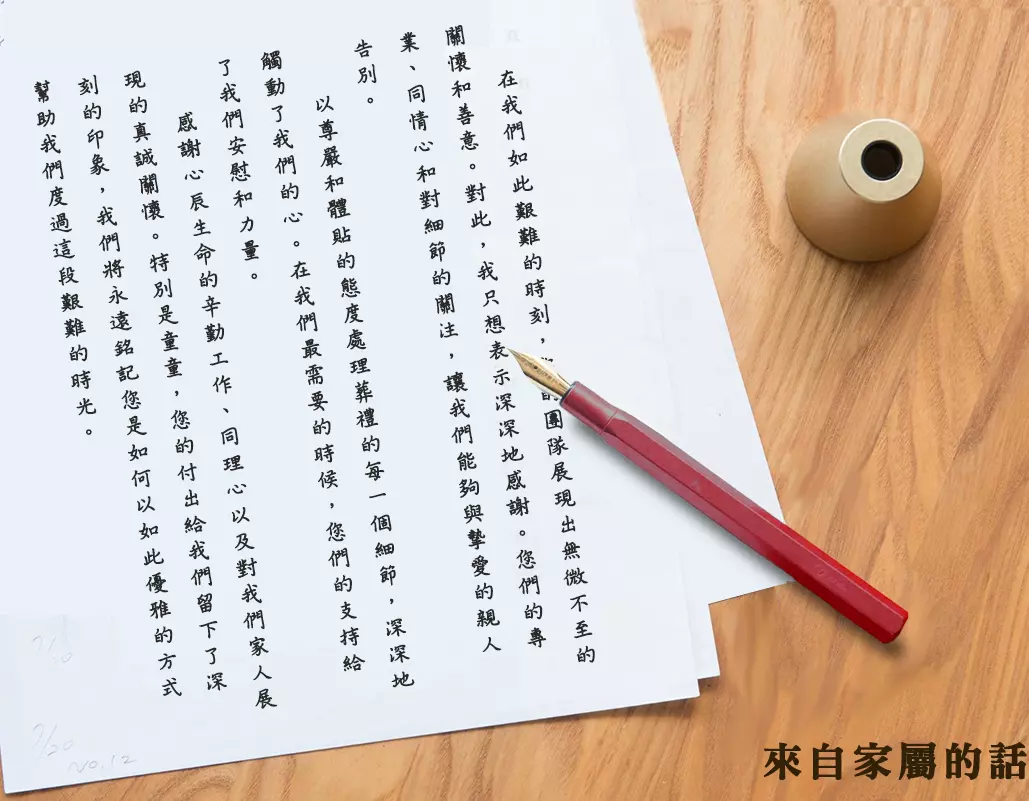 在我們如此艱難的時刻，團隊展現出無微不至的
關懷和善意。對此，我只想表示深深地感謝。您們的專
業、同情心和對細節的關注，讓我們能夠與摯愛的親人
告別。
以尊嚴和體貼的態度處理葬禮的每一個細節，深深地
觸動了我們的心。在我們最需要的時候，您們的支持給
了我們安慰和力量。
感謝心辰生命的辛勤工作、同理心以及對我們家人展
現的真誠關懷。特別是童童，您的付出給我們留下了深
刻的印象，我們將永遠銘記您是如何以如此優雅的方式
幫助我們度過這段艱難的時光。
7/20
No.12
來自家屬的話